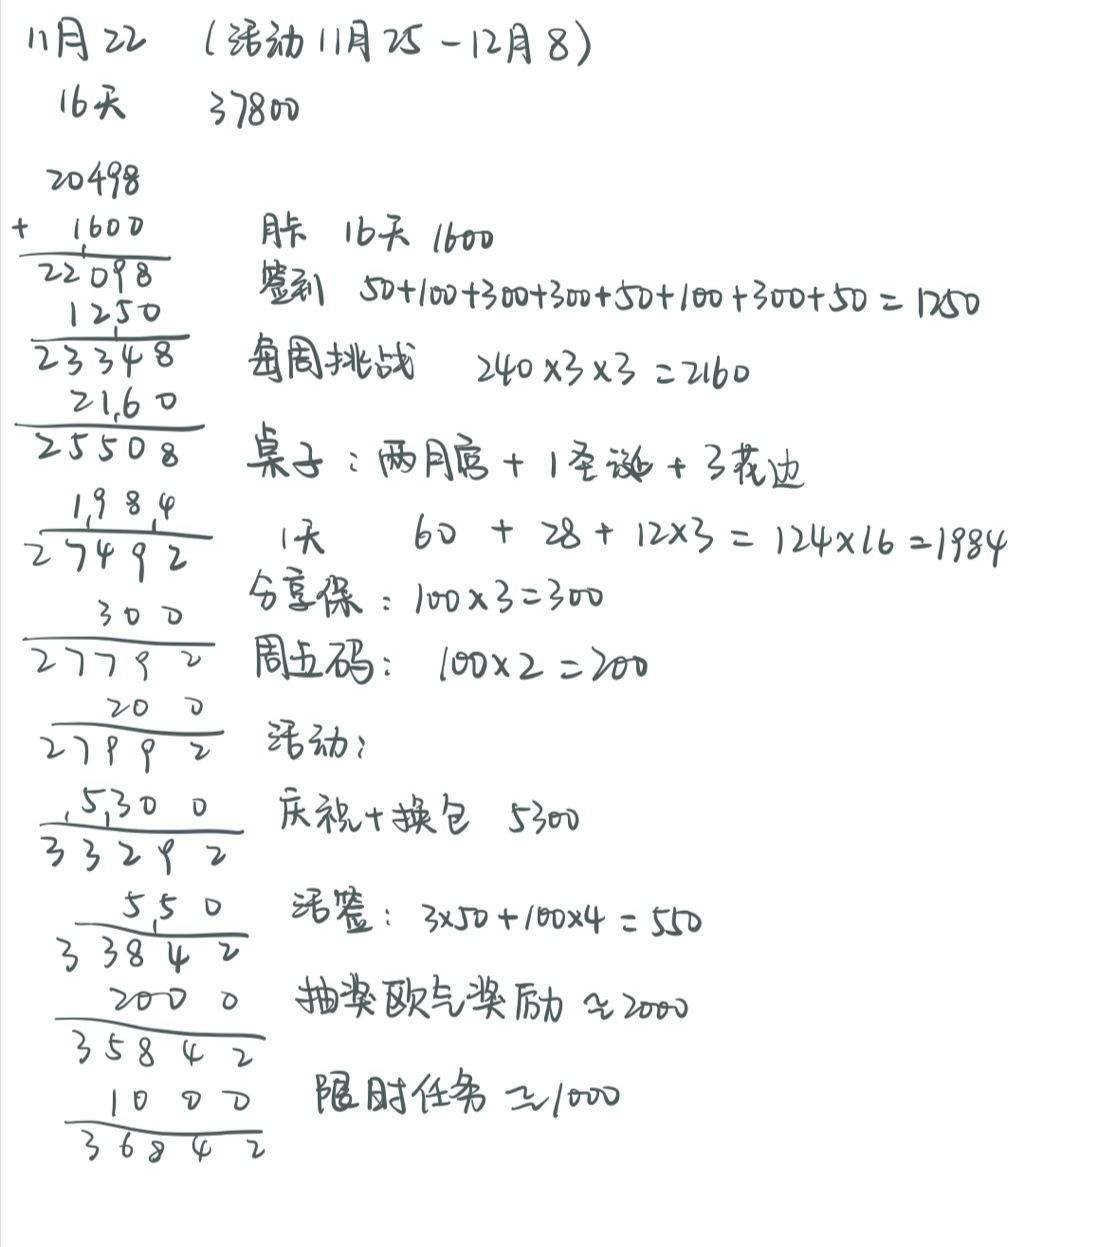 11月22 (活动11月25-12月8)
16天 37800
20498
+ 1600 月卡 16天 1600
22098
1250 签到 50+100+300+300+50+100+300+50=1250
23348 每周挑战 240×3×3=2160
2160
25508 桌子:两月宫+1圣诞+3花边
1984
27492 1天 60+28+12×3=124×16=1984
300 分享保:100×3=300
27792 周五码: 100×2=200
200
27992 活动:
5300 庆祝+换包 5300
33292
550 活签: 3×50+100×4=550
33842
2000 抽奖欧气奖励≈2000
35842
1000 限时任务≈1000
36842